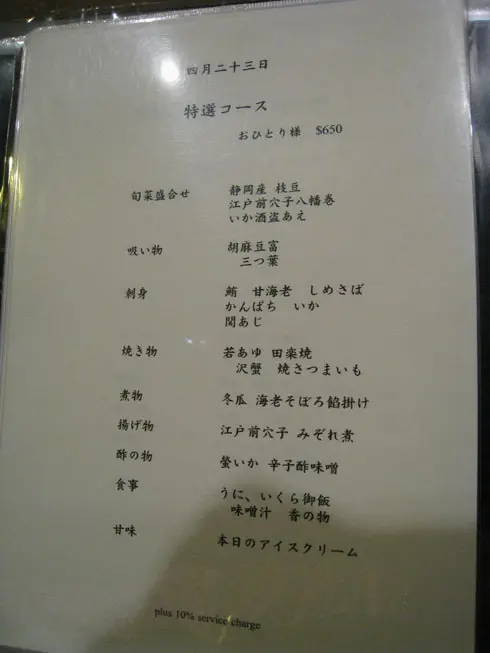 四月二十三日
特選コース
おひとり様 $650
旬菜盛合せ 静岡産 枝豆
江戸前穴子八幡巻
いか酒盗あえ
吸い物 胡麻豆富
三つ葉
刺身 鮪 甘海老 しめさば
かんぱち いか
関あじ
焼き物 若あゆ 田楽焼
沢蟹 焼さつまいも
煮物 冬瓜 海老そぼろ餡掛け
揚げ物 江戸前穴子 みぞれ煮
酢の物 螢いか 辛子酢味噌
食事 うに、いくら御飯
味噌汁 香の物
甘味 本日のアイスクリーム
plus 10% service charge